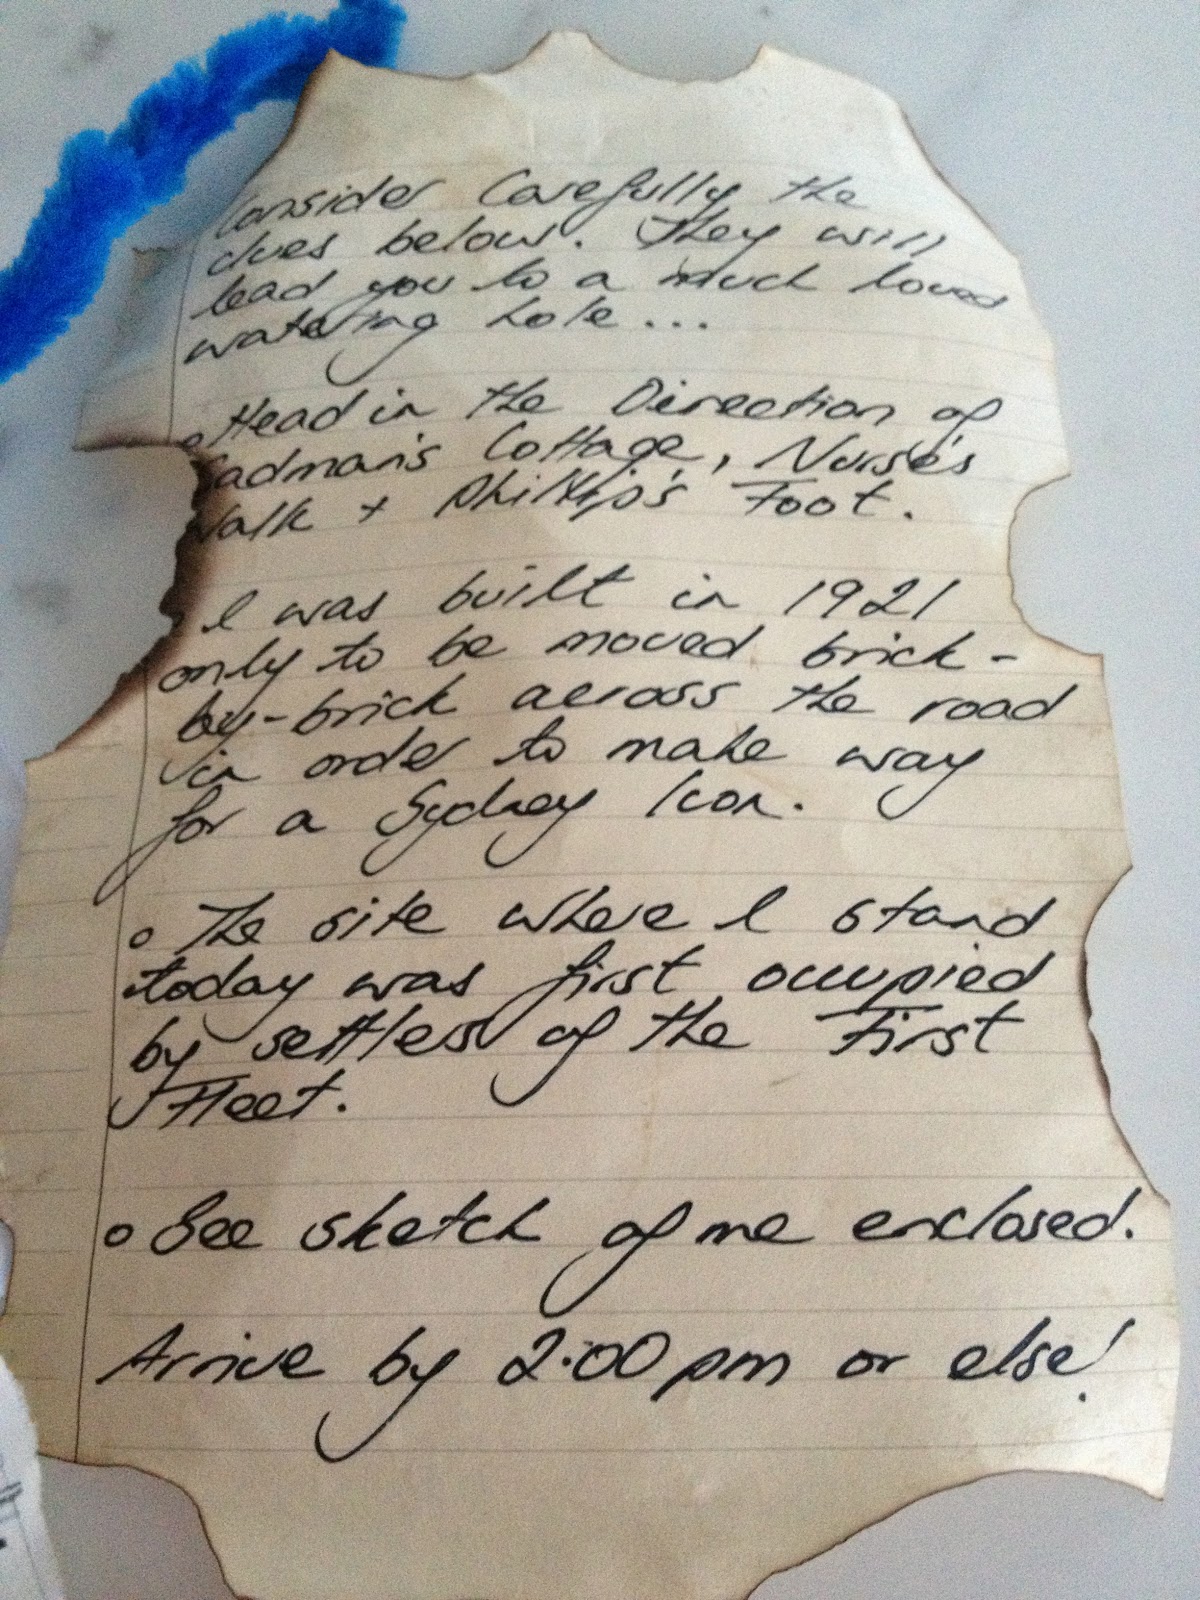 Consider Carefully the
clues below. They will
lead you to a much loved
watering hole...
o Head in the Direction of
Cadman's Cottage, Nurse's
Walk + Phillip's Foot.
I was built in 1921
only to be moved brick-
by-brick across the road
in order to make way
for a Sydney Icon.
o The site where I stand
today was first occupied
by settlers of the First
Fleet.
o See sketch of me enclosed.
Arrive by 2:00pm or else!